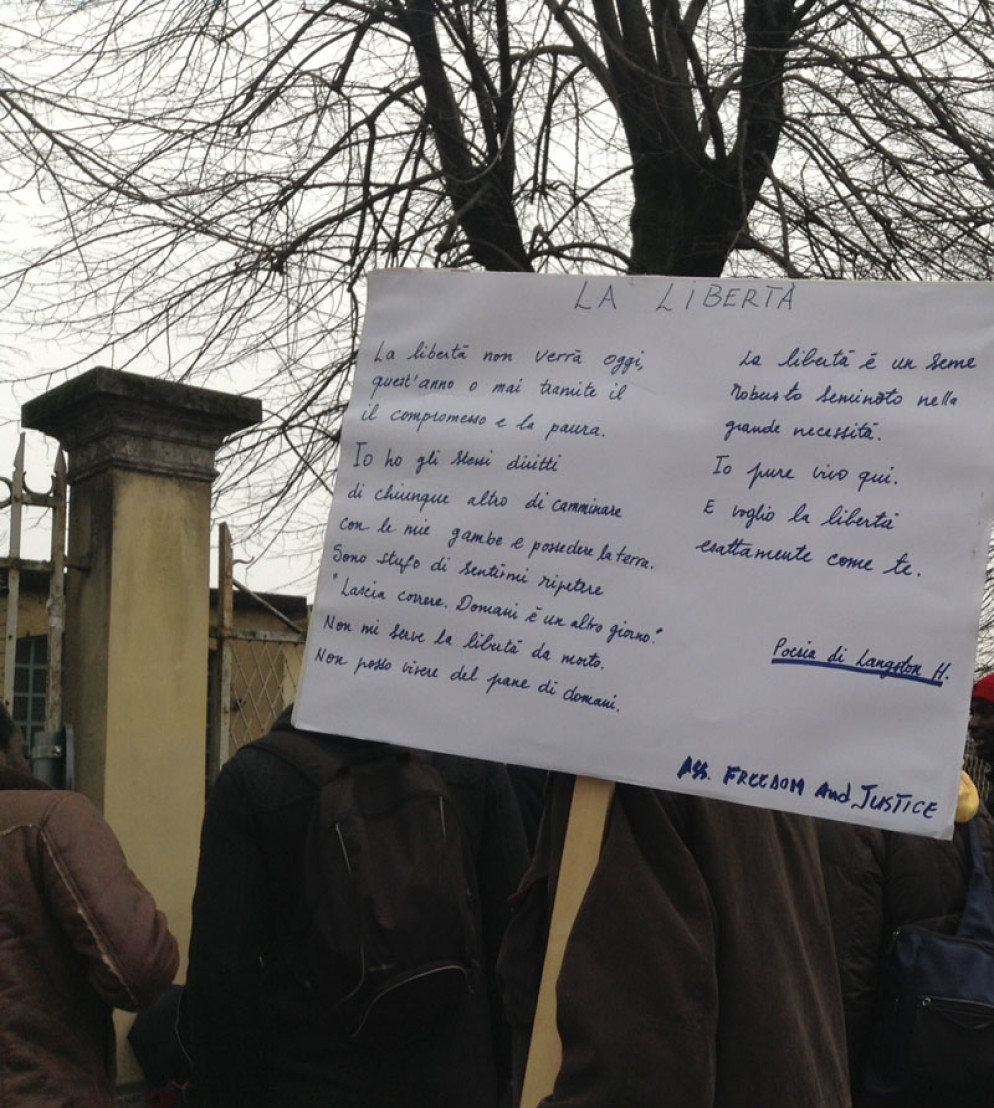 LA LIBERTÀ
La libertà non verrà oggi,
quest'anno o mai tramite il
il compromesso e la paura.
Io ho gli stessi diritti
di chiunque altro di camminare
con le mie gambe e possedere la terra.
Sono stufo di sentirmi ripetere
"Lascia correre. Domani è un altro giorno."
Non mi serve la libertà da morto.
Non posso vivere del pane di domani.
La libertà è un seme
robusto seminato nella
grande necessità.
Io pure vivo qui.
E voglio la libertà
esattamente come te.
Poesia di Langston H.
Ass. FREEDOM And JUSTICE